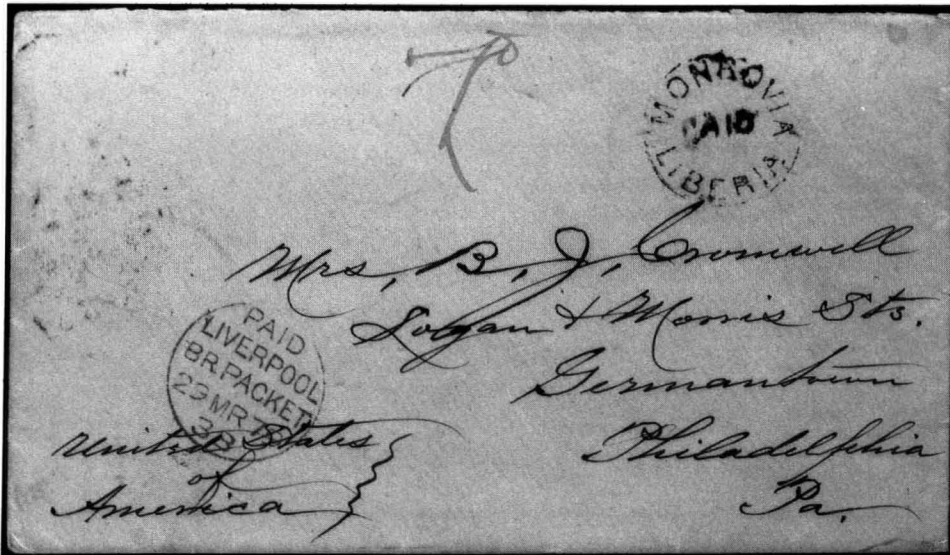 MONROVIA
PAID
LIBERIA
Mrs, B, J, Cromwell
Logan & Morris Sts.
Germantown
Philadelphia
Pa.
PAID
LIVERPOOL
BR. PACKET
29 MR
3B
United States
of
America